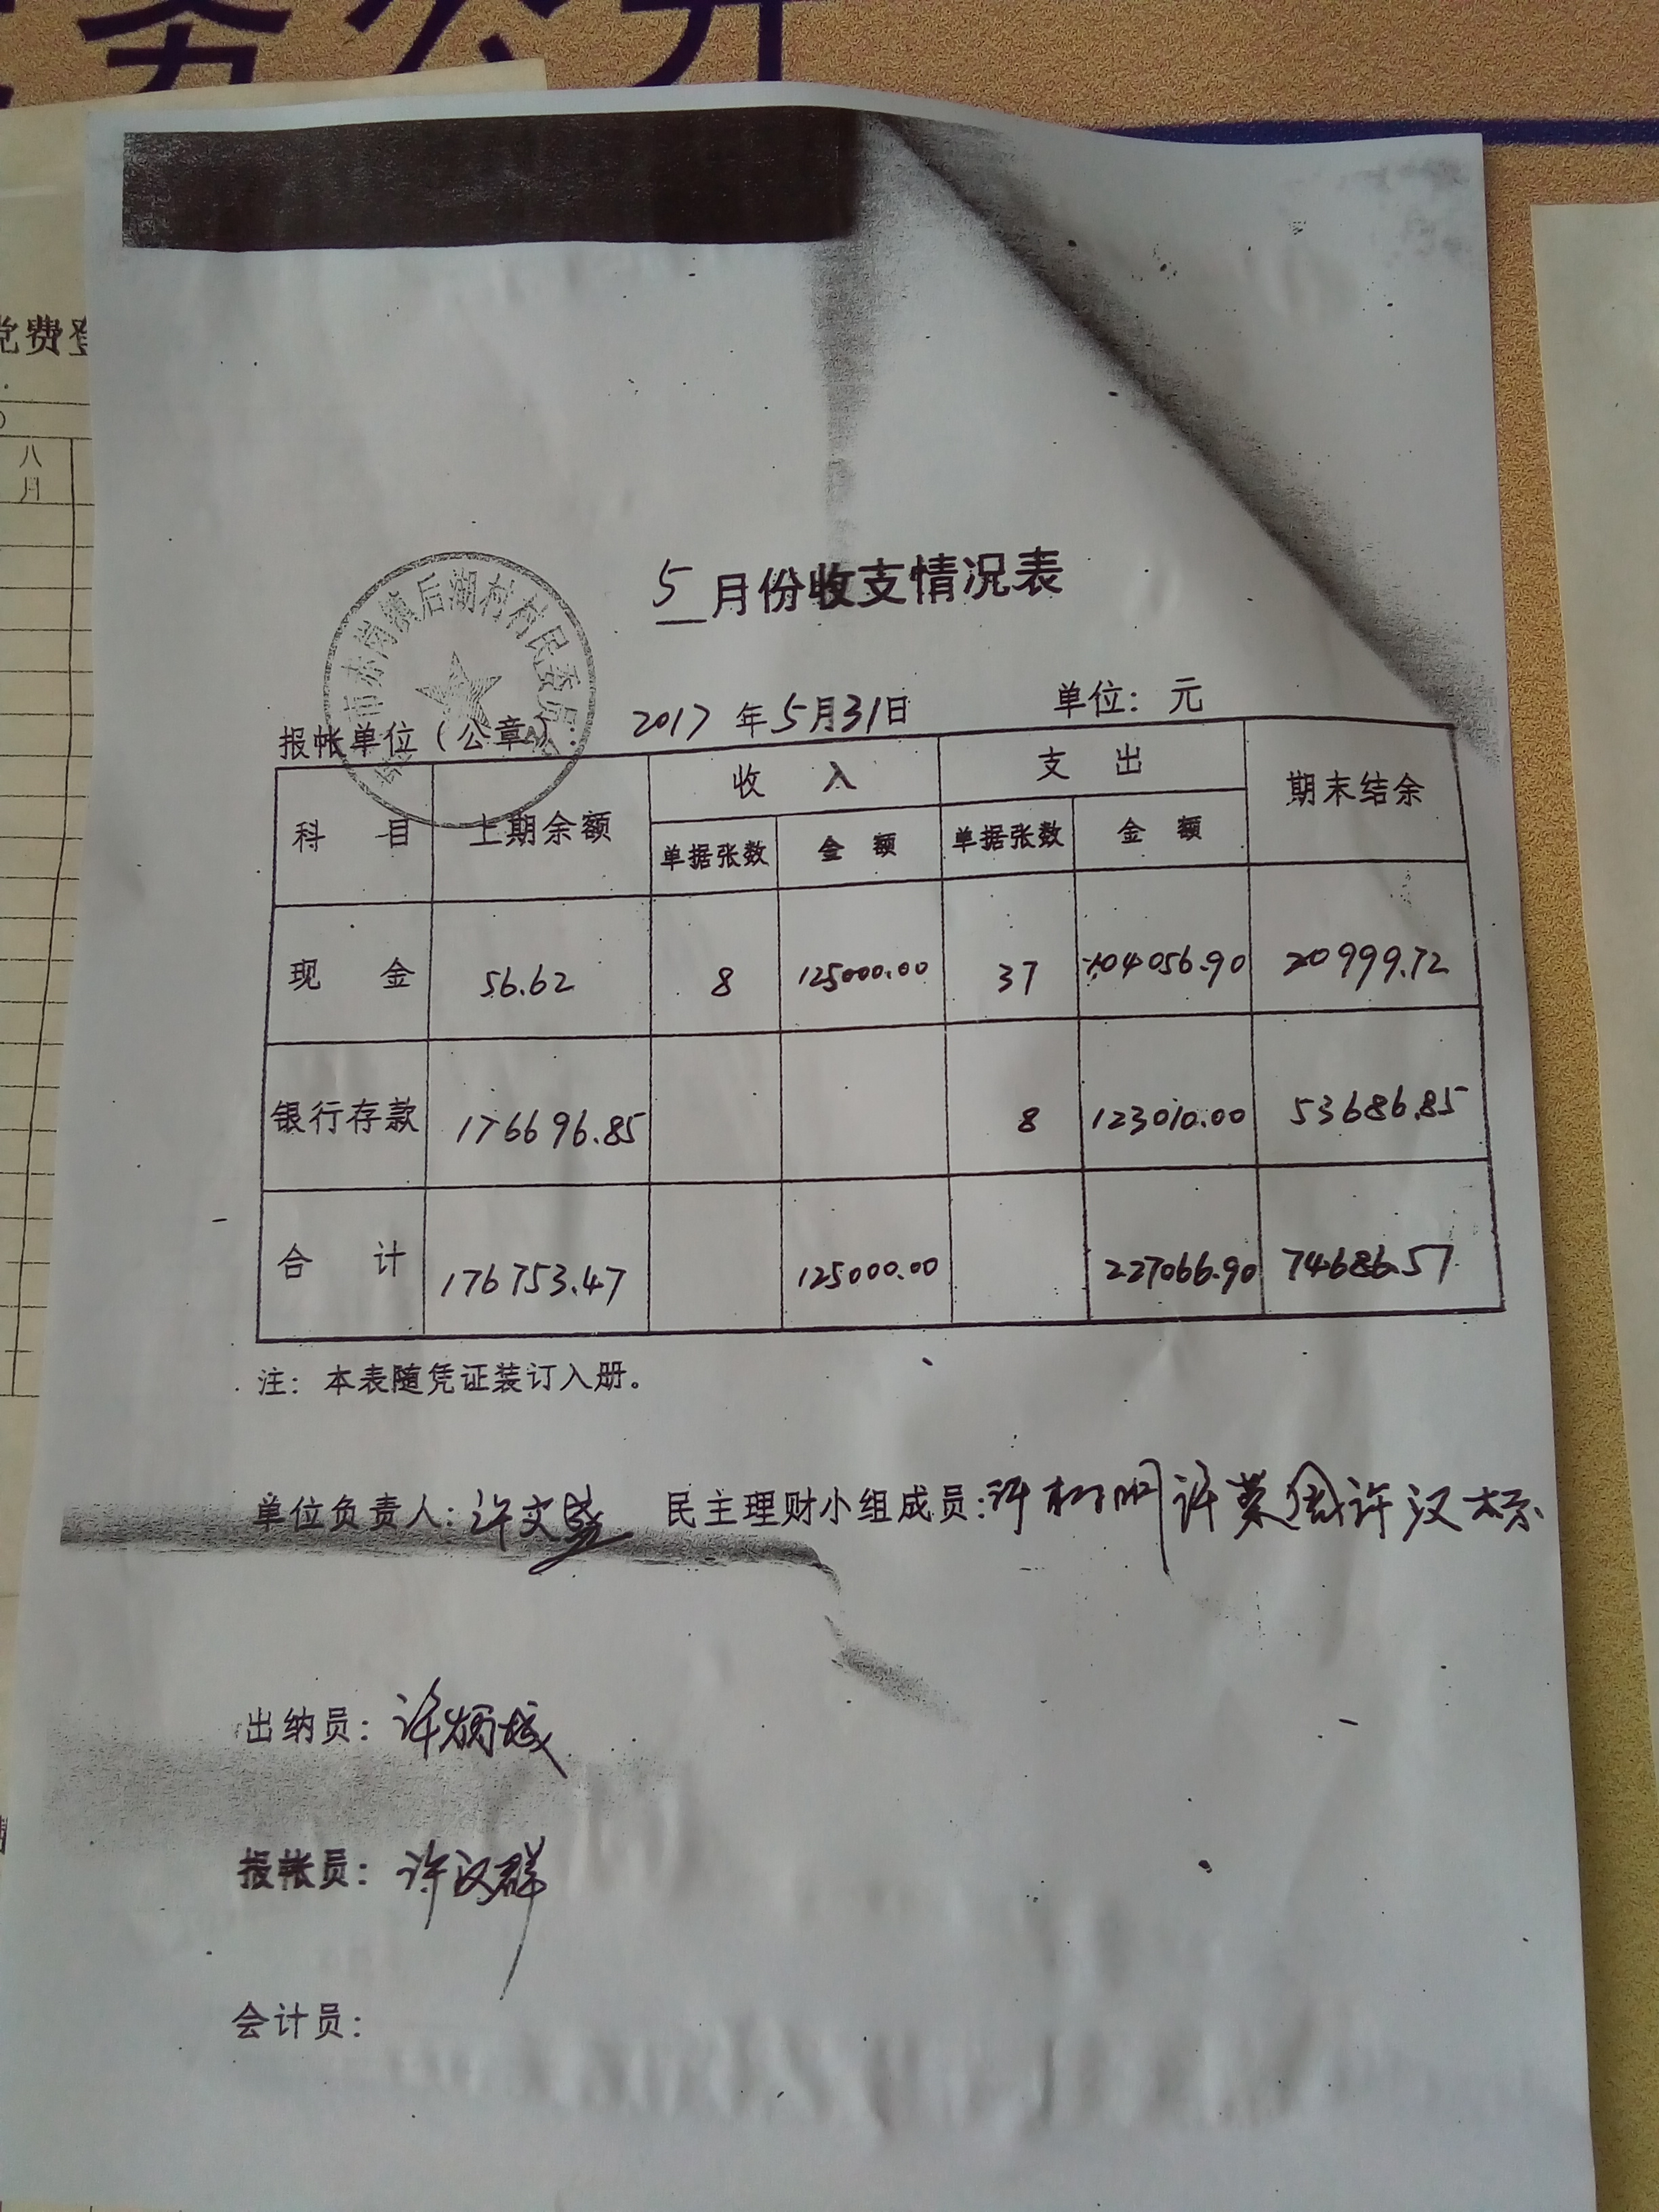 务公开
党费登
八
月
5月份收支情况表
后湖村村民委员
报帐单位（公章）： 2017年5月31日 单位：元
科 目 上期余额 收 入 支 出 期末结余
单据张数 金 额 单据张数 金 额
现 金 56.62 8 125000.00 37 104056.90 20999.72
银行存款 176696.85 8 123010.00 53686.85
合 计 176753.47 125000.00 227066.90 74686.57
注：本表随凭证装订入册。
单位负责人：许文 民主理财小组成员：许 明 许 许汉标
出纳员：许炳城
报帐员：许汉群
会计员：